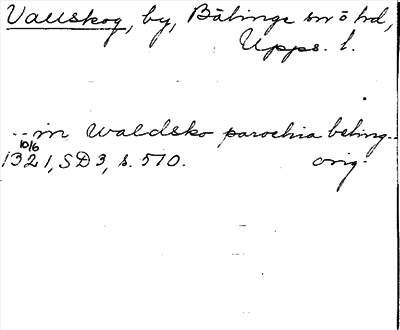 Vallskog, by, Bälinge sn o hd,
Upps. l.
..in Waldsko parochia beling..
10/6
1321, SD 3, s. 570. orig.